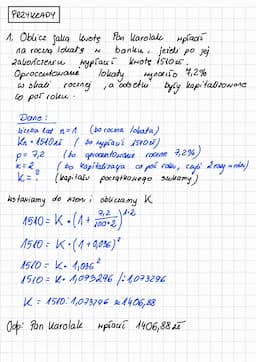 PRZYKŁADY
1. Oblicz jaką kwotę Pan Karolak wpłacił
na roczną lokatę w banku, jeżeli po jej
zakończeniu wypłacił kwotę 1510 zł.
Oprocentowanie lokaty wynosiło 7,2%
w skali rocznej, a odsetki były kapitalizowane
co pół roku.
Dane:
liczba lat n=1 (bo roczna lokata)
Kn = 1510 zł (bo wypłacił 1510 zł)
p = 7,2 (bo oprocentowanie roczne 7,2%)
k = 2 (bo kapitalizacja co pół roku, czyli 2 razy w roku)
K = ? (kapitału początkowego szukamy)
Wstawiamy do wzoru i obliczamy K
1510 = K · (1 + 7,2/100·2)^1·2
1510 = K · (1 + 0,036)²
1510 = K · 1,036²
1510 = K · 1,073296 /: 1,073296
K = 1510 : 1,073296 ≈ 1406,88
Odp: Pan Karolak wpłacił 1406,88 zł